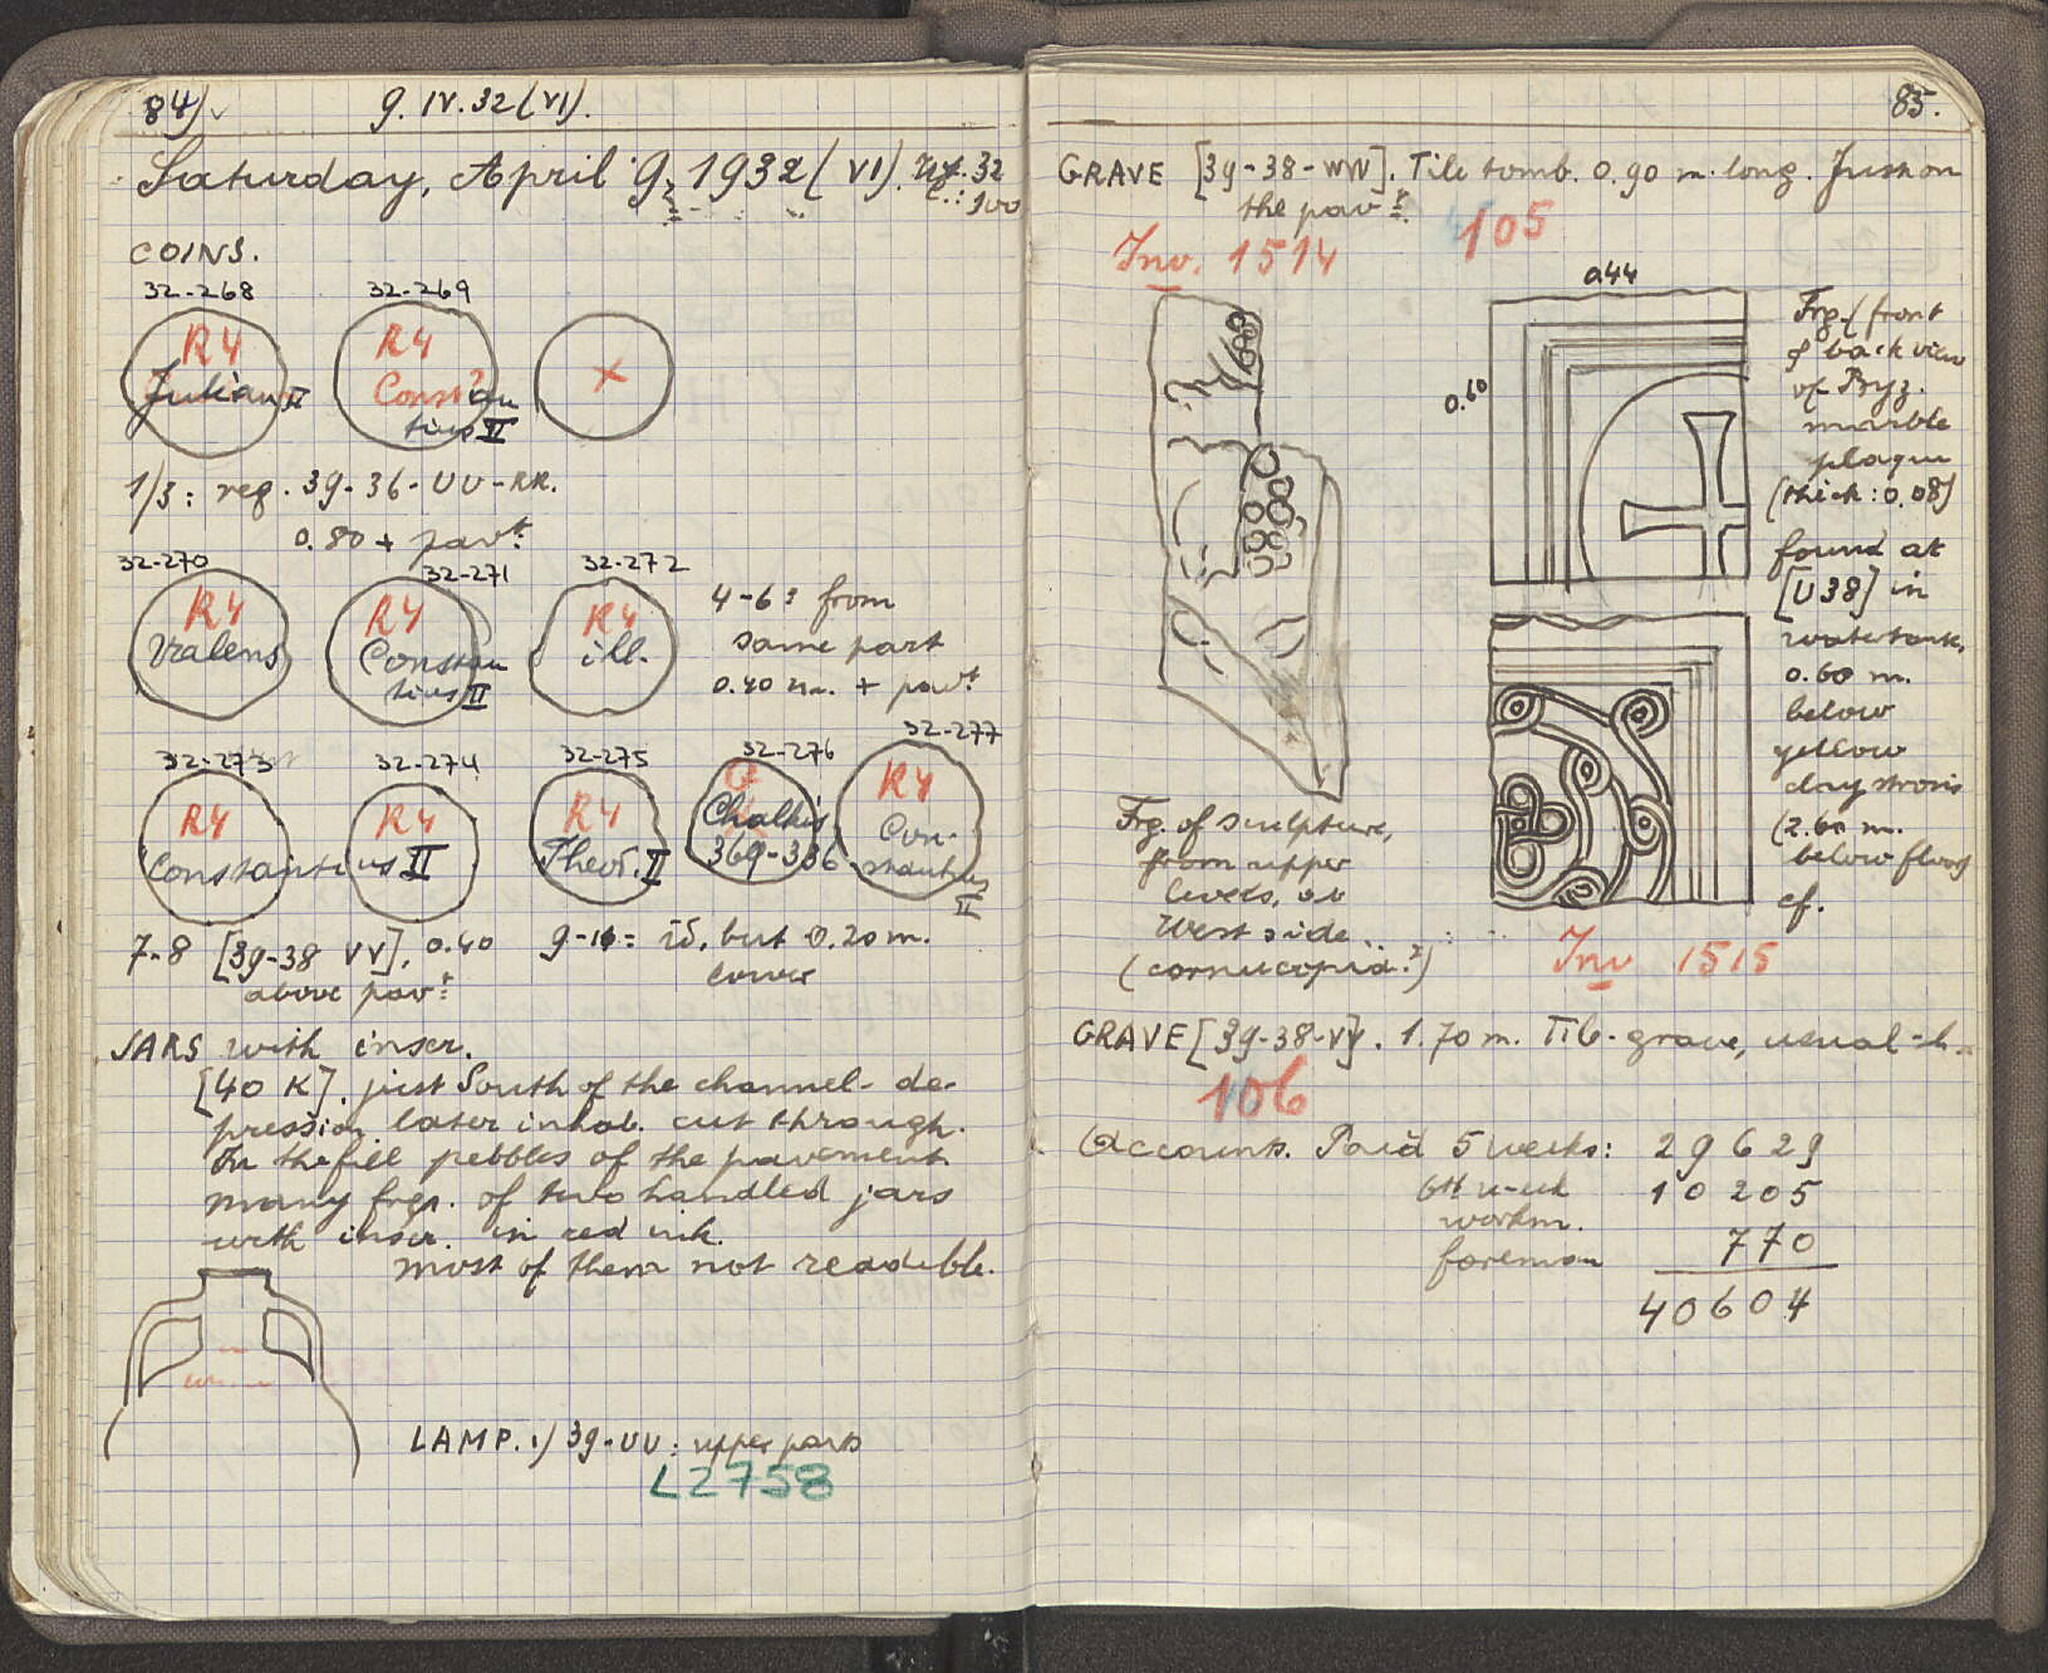 84)
9. IV. 32 (VI).
Saturday, April 9, 1932 (VI). 32
: 100
COINS.
32-268 32-269
R4 Julian II
R4 Constantius II
X
1/3: reg. 39-36-UU-RR.
0.80 + pavt.
32-270 32-271 32-272
R4 Valens
R4 Constantius II
R4 ill.
4-6: from
same part
0.40 m. + pavt.
32-273 32-274 32-275 32-276 32-277
R4 R4
Constantius II
R4 Theod. II
Chalkis 369-336
R4 Constantius II
7-8 [39-38 VV], 0.40
above pavt.
9-11 = id, but 0.20 m.
lower
JARS with inscr.
[40 K], just South of the channel-de-
pression later inhab. cut through.
In the fill pebbles of the pavement
many frgs. of two handled jars
with inscr. in red ink.
most of them not readible.
LAMP. 1) 39-UU: upper parts
L2758
85.
GRAVE [39-38-WW]. Tile tomb. 0.90 m. long. Just on
the pavt.
105
Inv. 1514
0.44
0.60
Frg. (front
& back view
of Byz.
marble
plaque
(thick: 0.08)
found at
[U38] in
watertank,
0.60 m.
below
yellow
clay strosis
(2.60 m.
below floor)
cf.
Frg. of sculpture,
from upper
levels, on
West side
(cornucopia?)
Inv 1515
GRAVE [39-38-VV]. 1.70 m. Tile-grave, usual
106
Accounts. Paid 5 weeks: 29629
6th week
workm. 10205
foreman 770
40604